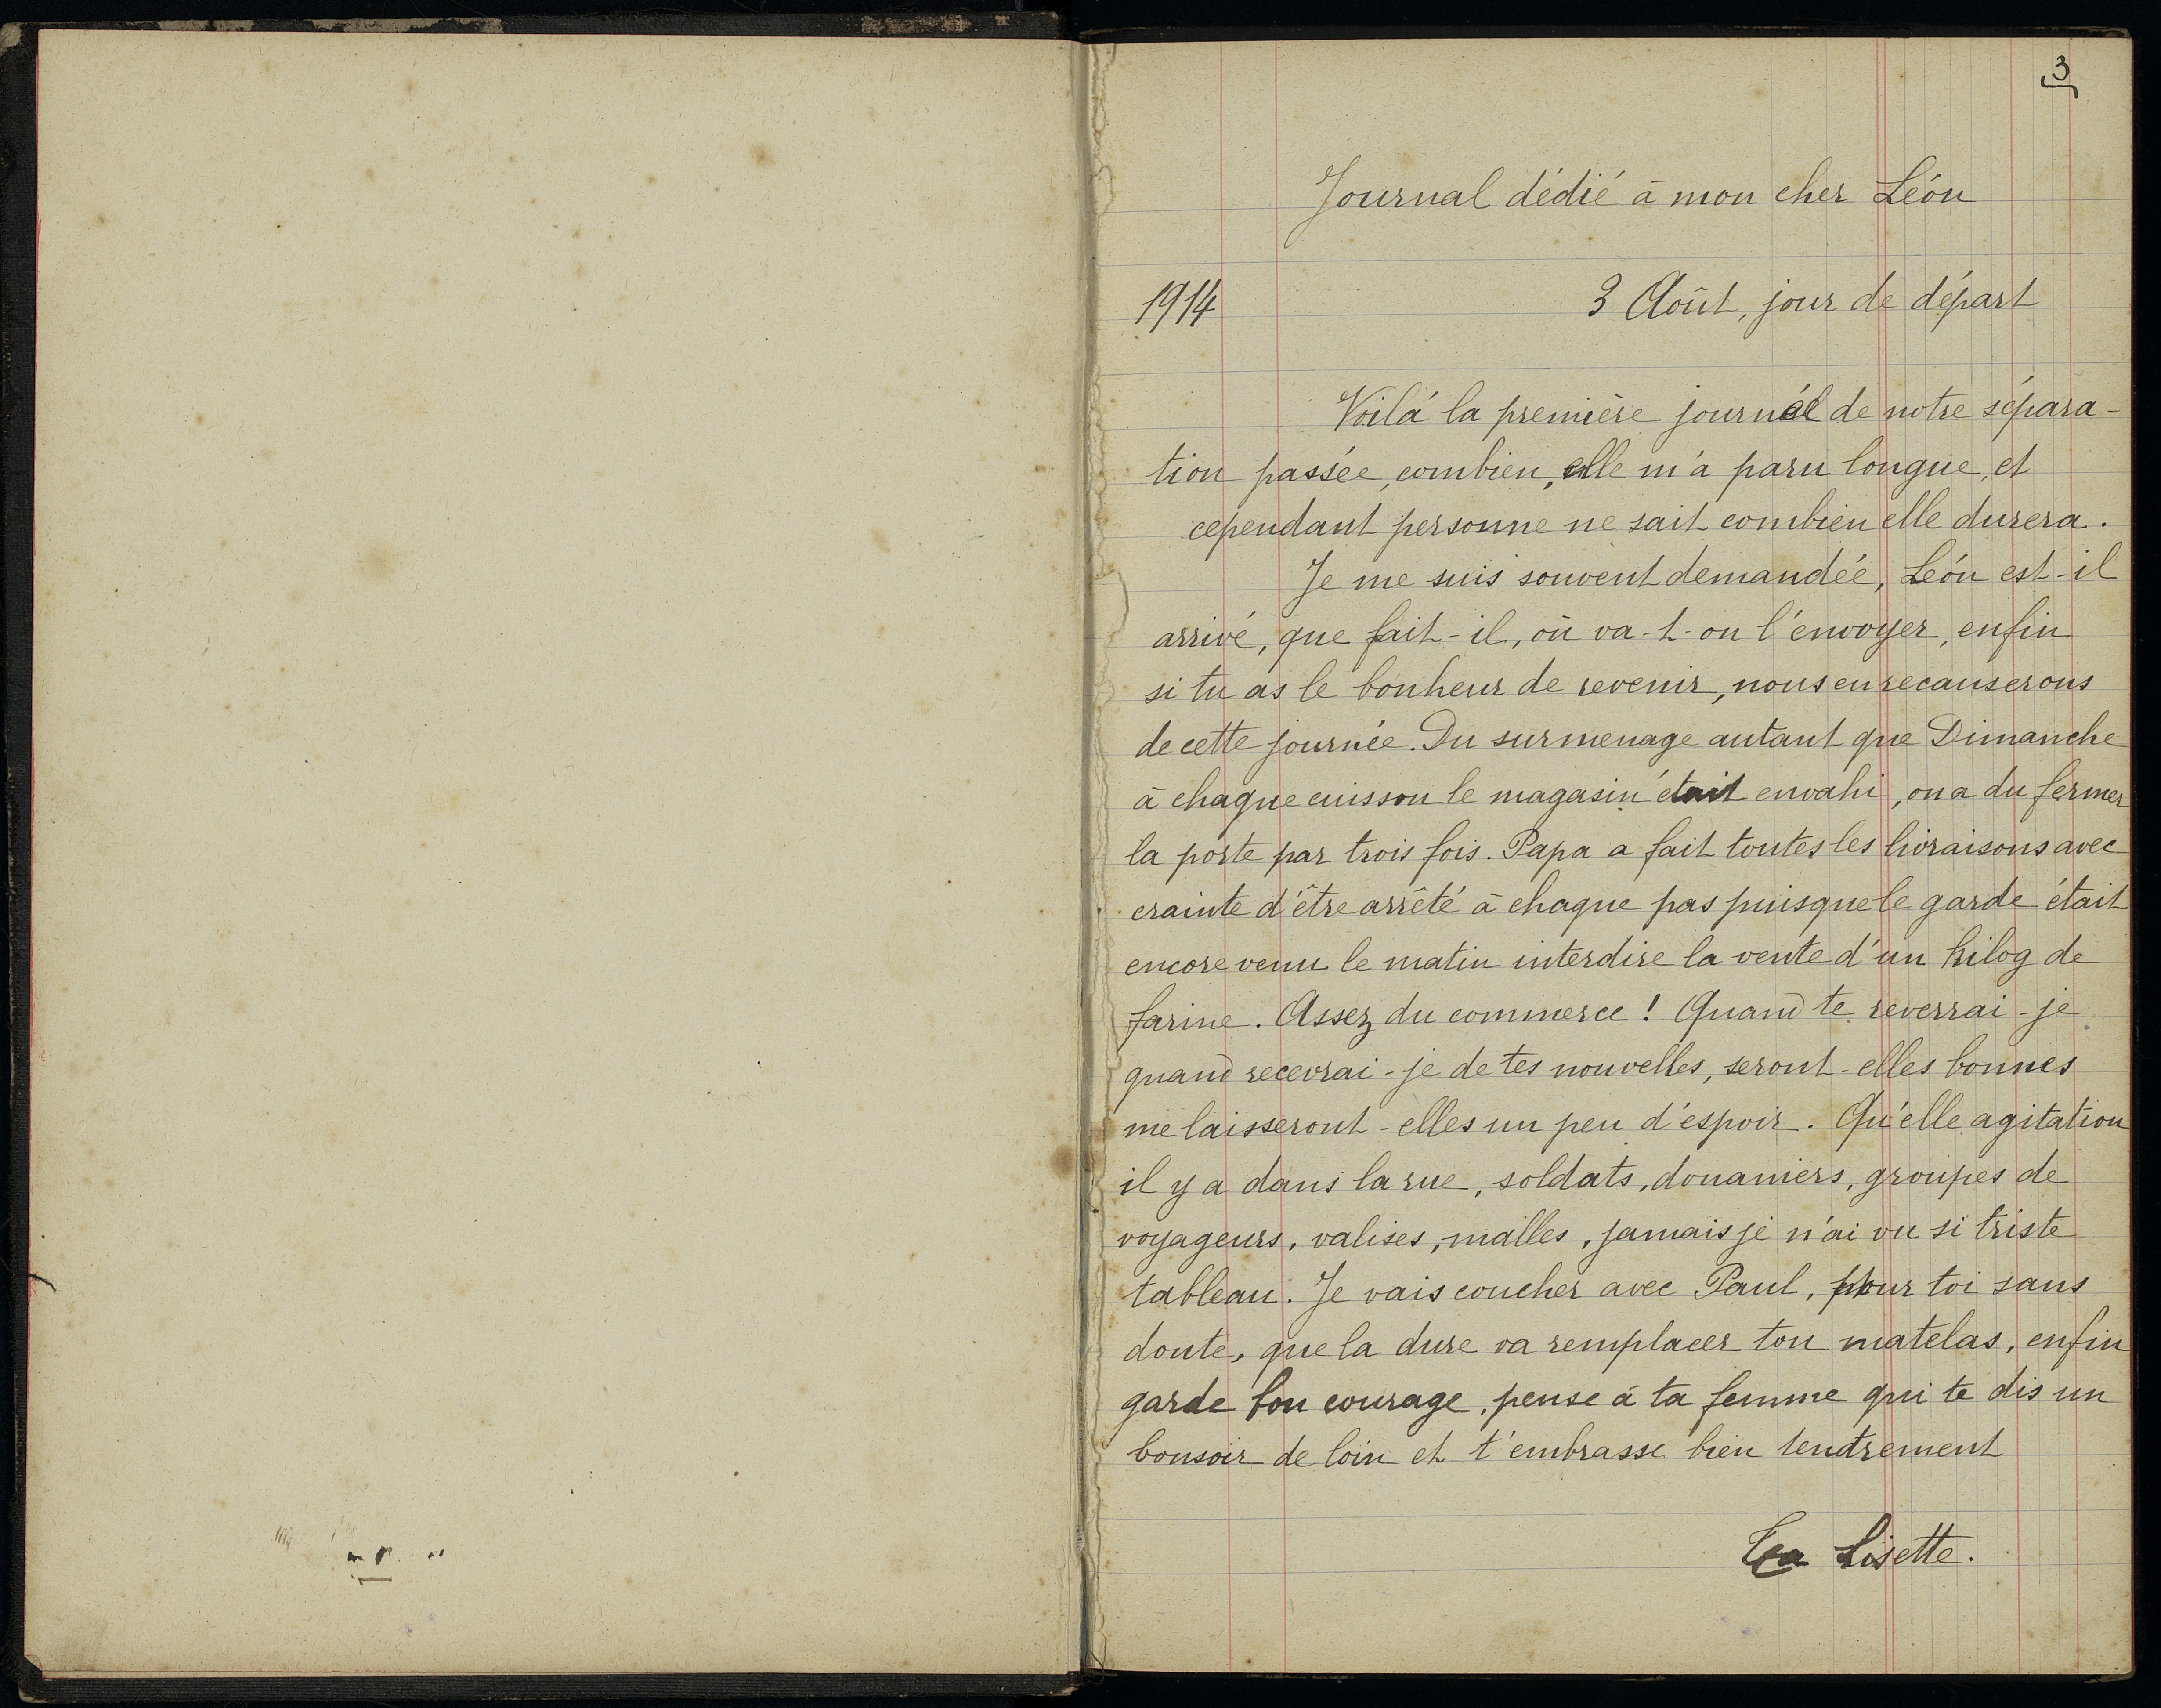 3
Journal dédié à mon cher Léon
1914
3 Août, jour de départ
Voilà la première journée de notre sépara-
tion passée, combien, elle m'a paru longue, et
cependant personne ne sait combien elle durera.
Je me suis souvent demandée, Léon est-il
arrivé, que fait-il, où va-t-on l'envoyer, enfin
si tu as le bonheur de revenir, nous en recauserons
de cette journée. Du surmenage autant que Dimanche
à chaque cuisson le magasin était envahi, on a du fermer
la porte par trois fois. Papa a fait toutes les livraisons avec
crainte d'être arrêté à chaque pas puisque le garde était
encore venu le matin interdire la vente d'un kilog de
farine. Assez du commerce ! Quand te reverrai-je
quand recevrai-je de tes nouvelles, seront-elles bonnes
me laisseront-elles un peu d'espoir. Qu'elle agitation
il y a dans la rue, soldats, douaniers, groupes de
voyageurs, valises, malles, jamais je n'ai vu si triste
tableau. Je vais coucher avec Paul, pour toi sans
doute, que la dure va remplacer ton matelas, enfin
garde bon courage, pense à ta femme qui te dis un
bonsoir de loin et t'embrasse bien tendrement
Ta Lisette.